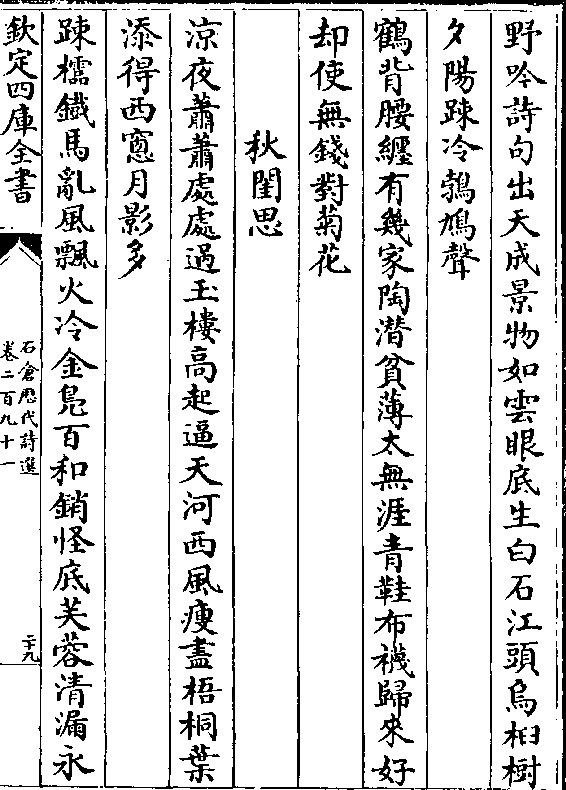 野吟詩句出天成景物如雲眼底生白石江頭烏桕樹
夕陽踈冷鵓鳩聲
鶴背腰纏有幾家陶潜貧薄太無涯青鞋布襪歸來好
却使無錢對菊花
秋閨思
凉夜蕭蕭處處過玉樓高起逼天河西風瘦盡梧桐葉
添得西窻月影多
踈櫺鐡馬亂風飄火冷金鳬百和銷怪底芙蓉清漏永
欽定四庫全書
石倉歷代詩選
卷二百九十一
二十九